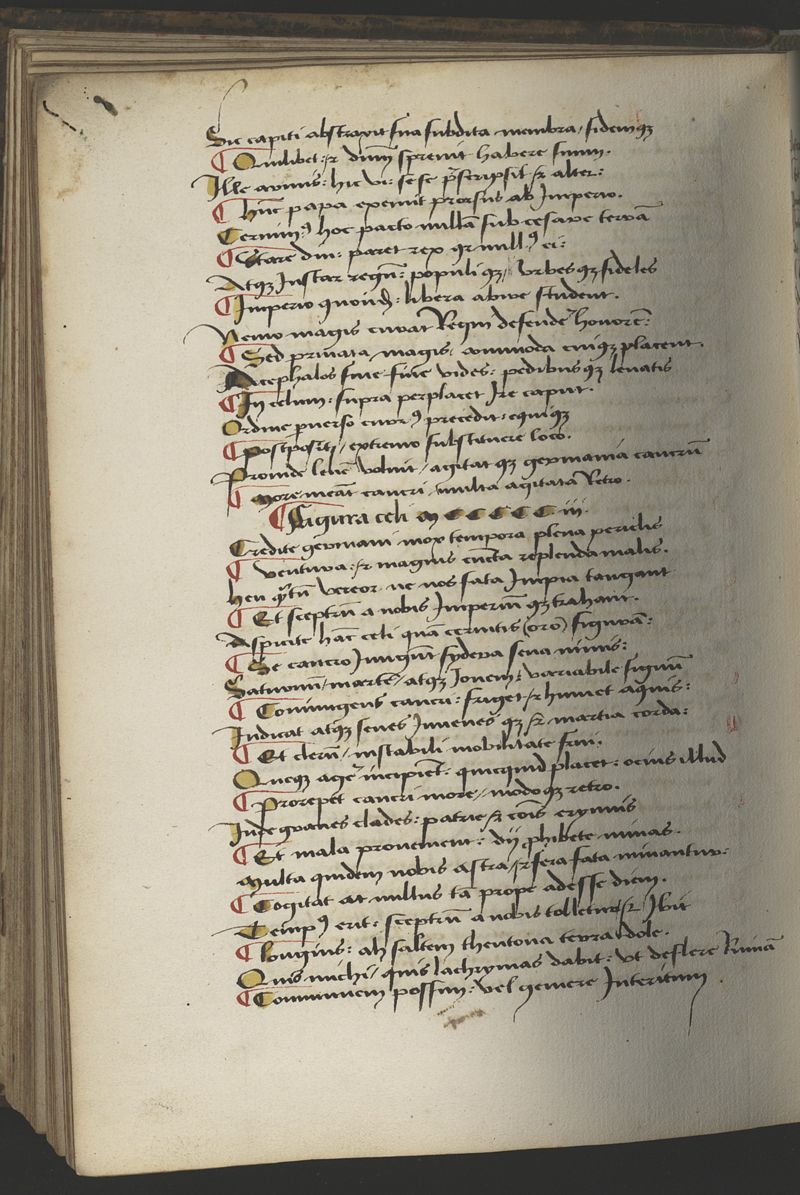 Sic capiti abstraxit sua subdita membra / fidemqꝫ
¶ Quilibet : ⁊ dnm̄ spreuit habere suum .
Ille armis : hic vi : sese p̄scripsit ⁊ alter :
¶ Hūc papa exemit prorsus ab Imperio .
Cernimꝰ hoc pacto nullā sub cesare terrā
¶ Stare diu : paret rex qr nullꝰ ei :
Atqꝫ Instar regū : populiqꝫ / vrbesqꝫ fideles
¶ Imperio quondā : libera abire student .
Nemo magis curat Regni defendeʳ honorē :
¶ Sed priuata magis / commoda cuiqꝫ placent .
Acephalos sine fine vides : pedibusqꝫ leuatis
¶ In celum : supra perplacet Ire caput .
Ordine puerso currꝰ precedit / equiqꝫ
¶ Postpositi / extremo substituere loco .
Proinde leuē voluit / agitatqꝫ germania cancrū
¶ More meāt cancri / multa agitata Retro .
¶ Figura celi M CCCCC iii .
Credite germani mox tempora plena periclis
¶ ventura : ⁊ magnis cūcta replenda malis .
Heu q̄ʳtū vereor ne nos fata Impia tangant
¶ Et sceptrū a nobis Imperiūqꝫ trahant .
Aspicite hāc celi quā cernitis (oro) figurā :
¶ Se cancro Iungūt sydera seua nimis :
Saturnū / martē / atqꝫ Iouem : variabile signū
¶ Coniungens cancri : friget ⁊ humet aquis :
Indicat atqꝫ senes Iuuenesqꝫ ⁊ martia corda :
¶ Et clerū / instabili mobilitate frui .
Queqꝫ ageʳ incipiēt : quicquid placet : ocius illud
¶ Prorepet cancri more / modoqꝫ retro .
Inde graues clades : patrie ⁊ cōis erynnis
¶ Et mala prouenient : dij phibete minas .
Multa quidem nobis astra / ⁊ fera fata minantur :
¶ Cogitat at nullus tā prope adesse diem .
Tempꝰ erit : sceptrū a nobis tolletur ⁊ Ibit
¶ longius : ah saltem theutona terra dole .
Quis michi / quis lachrymas dabit : vt deflere Ruinā
¶ Communem possim : vel gemere Interitum .